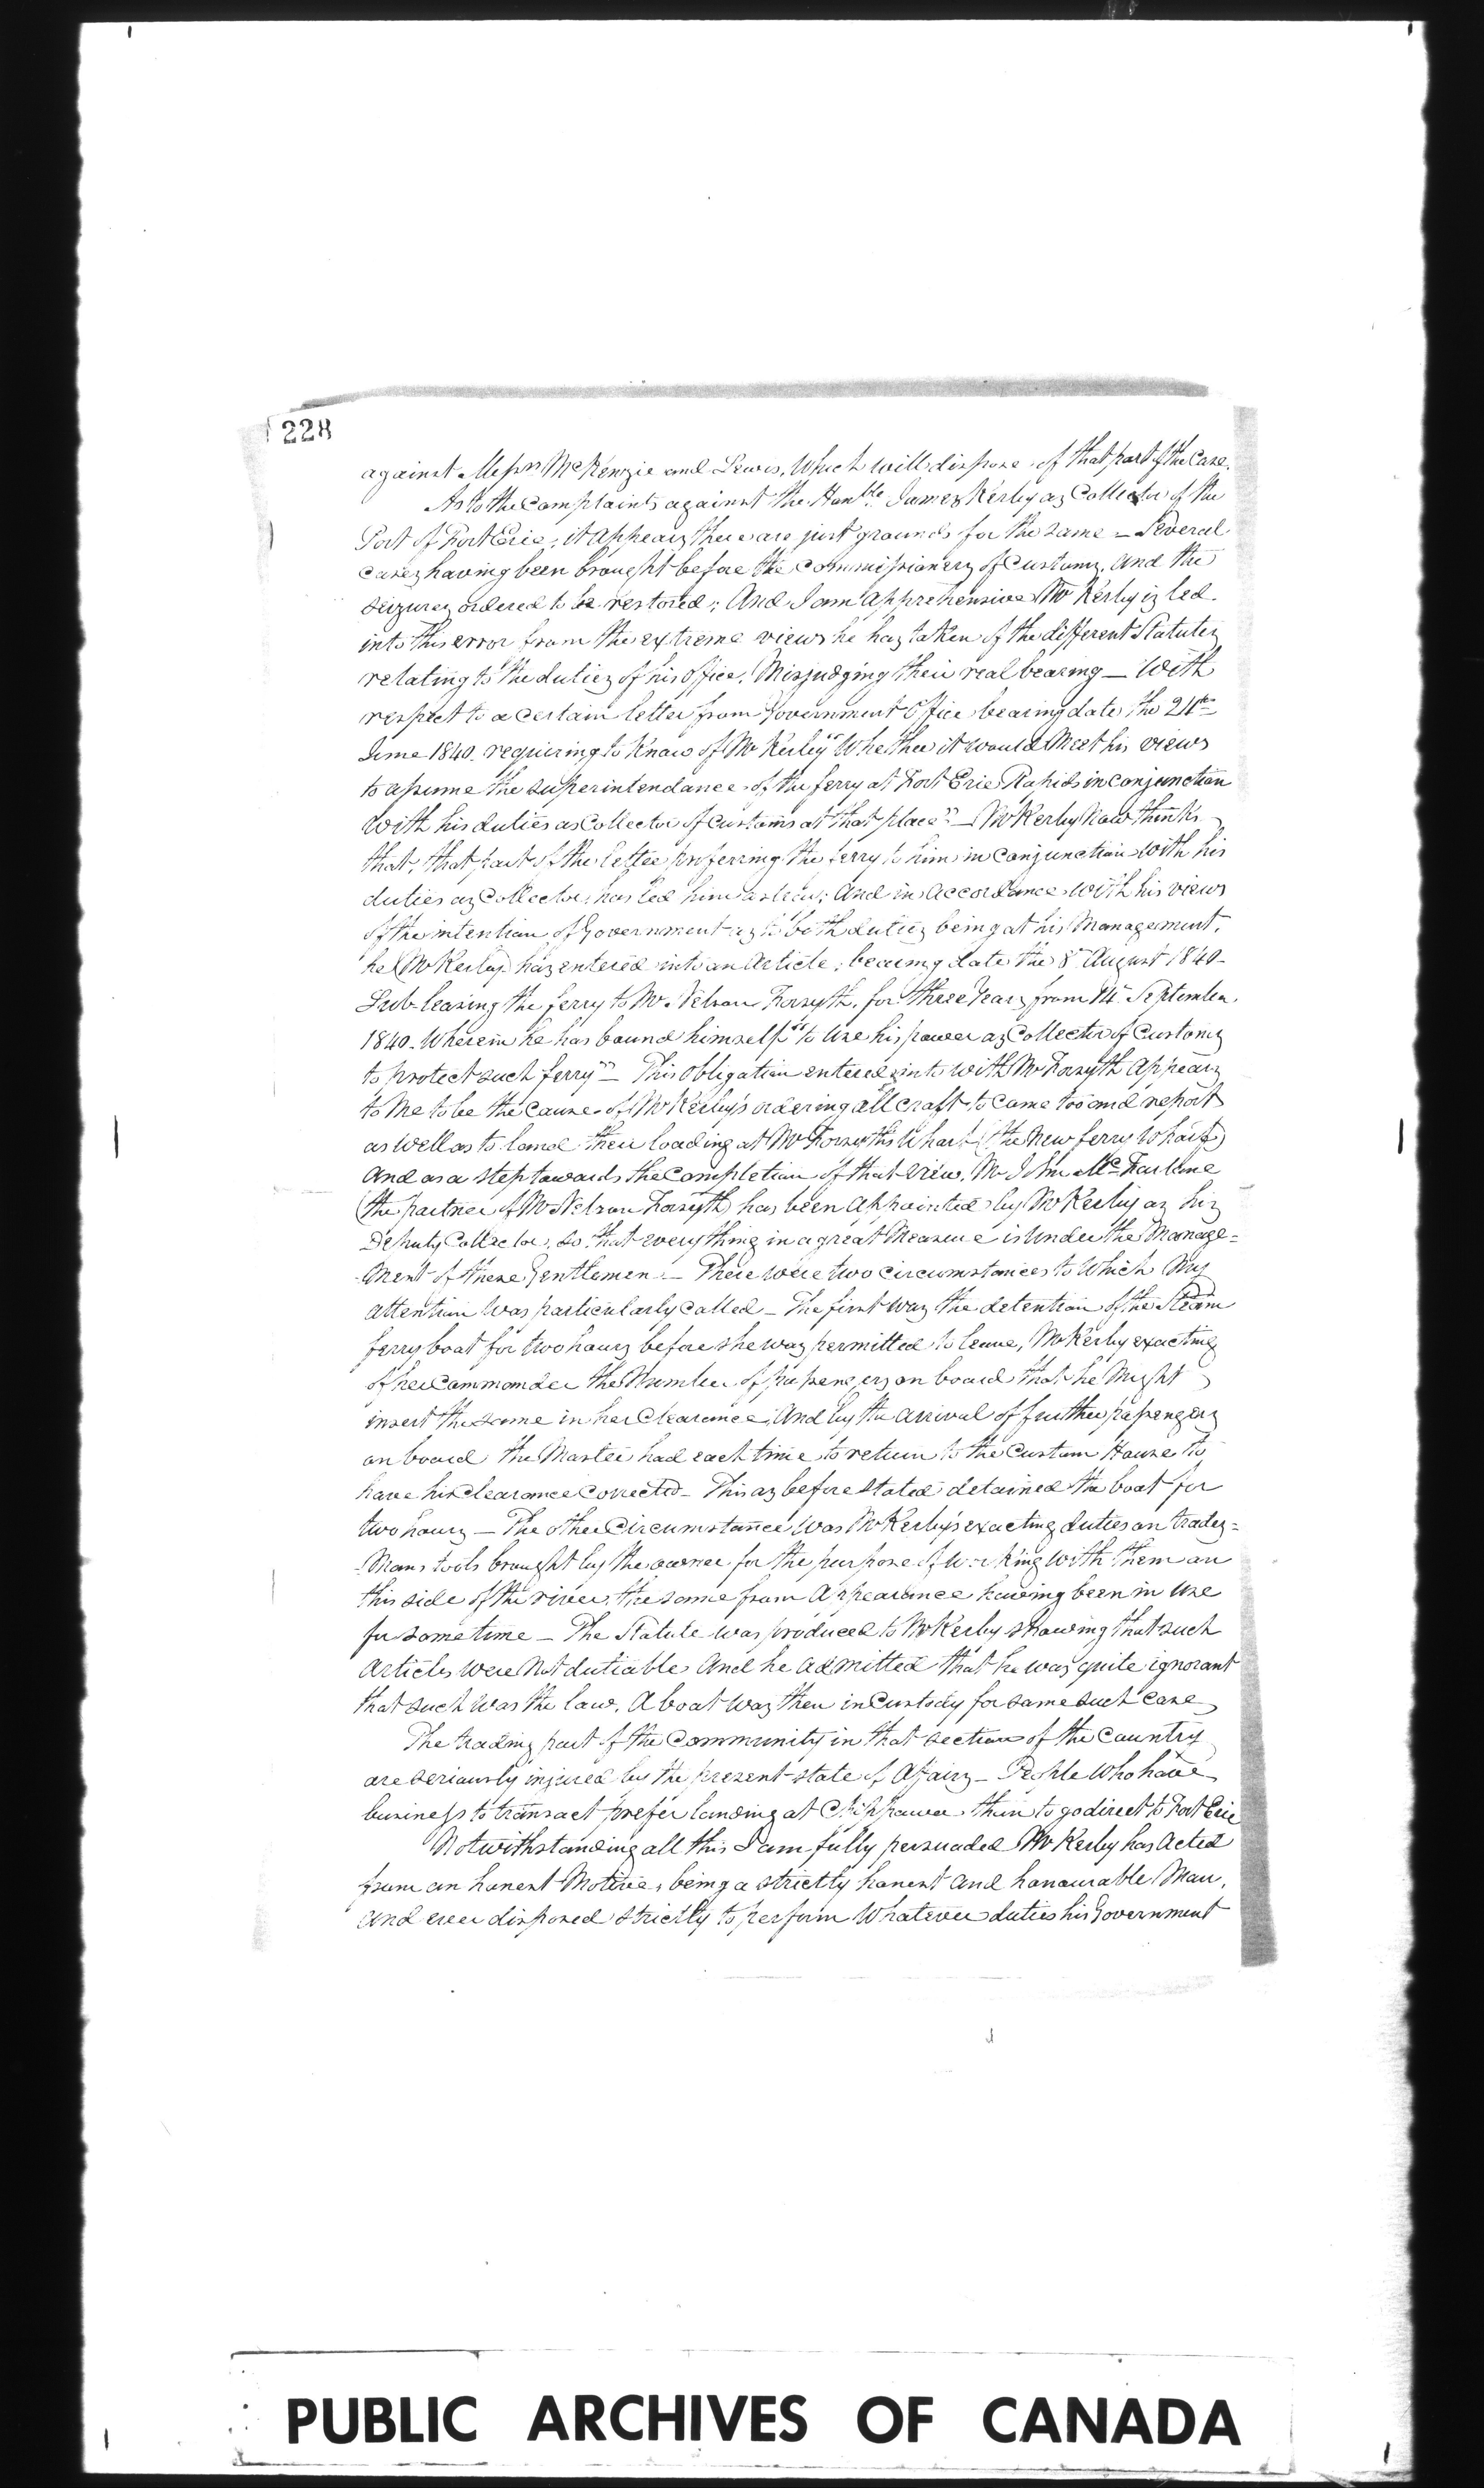 228
against Messrs McKenzie and Lewis, Which will dispose of that part of the Case.
As to the Complaints against the Honble James Kerby as Collector of the
Port of Fort Erie, it Appears there are just grounds for the same – Several
cases having been brought before the Commissioners of Customs, And the
seizures ordered to be restored; And I am Apprehensive Mr Kerby is led
into this error from the extreme views he has taken of the different Statutes
relating to the duties of his Office, Misjudging their real bearing – With
respect to a certain letter from Government Office bearing date the 24th
June 1840. requiring to Know of Mr Kerby "Whether it would Meet his views
to assume the superintendance of the ferry at Fort Erie Rapids in conjunction
With his duties as Collector of Customs at that place" – Mr Kerby Now thinks
that, that part of the letter proferring the ferry to him in Conjunction With his
duties as Collector, has led him astray; And in Accordance With his views
of the intention of Government as to both duties being at his Management,
he (Mr Kerby) has entered into an Article, bearing date the 8th August 1840
Sub-leasing the ferry to Mr Nelson Forsyth, for three Years from 14th September
1840. Wherein he has bound himself "to Use his power as Collector of Customs
to protect such ferry" – This Obligation entered into With Mr Forsyth Appears
to Me to be the Cause of Mr Kerby's ordering all Craft to Come too and report
as Well as to land their loading at Mr Forsyths Wharf (the New ferry Wharf)
And as a step towards the Completion of that View, Mr John McFarlane
(the partner of Mr Nelson Forsyth) has been Appointed by Mr Kerby as his
Deputy Collector, so that every thing in a great Measure is Under the Manage=
=Ment of these Gentlemen. – There Were two Circumstances to Which My
Attention Was particularly Called – The first Was the detention of the Steam
ferry boat for two hours before she Was permitted to leave, Mr Kerby exacting
of her Commander the Number of passengers on board that he Might
insert the same in her Clearance, And by the Arrival of further passengers
on board the Master had each time to return to the Custom House to
have his clearance Corrected – This as before Stated detained the boat for
two hours – The other Circumstance Was Mr Kerby's exacting duties on trades=
=Mans tools brought by the owner for the purpose of Working With them on
this side of the river, the same from Appearance having been in Use
for some time – The Statute Was produced to Mr Kerby showing that such
Articles Were Not dutiable And he Admitted that he Was quite ignorant
that such Was the law. A boat Was then in Custody for some such Case
The trading part of the Community in that section of the Country
are seriously injured by the present state of Affairs – People Who have
business to transact prefer landing at Chippawa than to go direct to Fort Erie
Notwithstanding all this I am fully persuaded Mr Kerby has Acted
from an honest Motive, being a strictly honest And honourable Man,
And ever disposed strictly to perform Whatever duties his Government
PUBLIC ARCHIVES OF CANADA